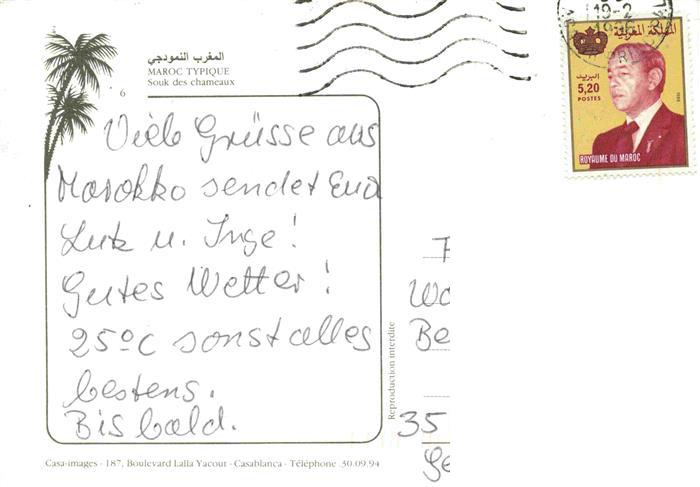 المغرب النموذجي
MAROC TYPIQUE
Souk des chameaux
6
Viele Grüsse aus
Marokko sendet Euch
Lutz u. Inge!
Gutes Wetter!
25°C sonst alles
bestens.
Bis bald.
Reproduction interdite
Wo
Be
35
Ge
Casa-images - 187, Boulevard Lalla Yacout - Casablanca - Téléphone .30.09.94
19-2
المملكة المغربية
البريد
5,20
POSTES
ROYAUME DU MAROC